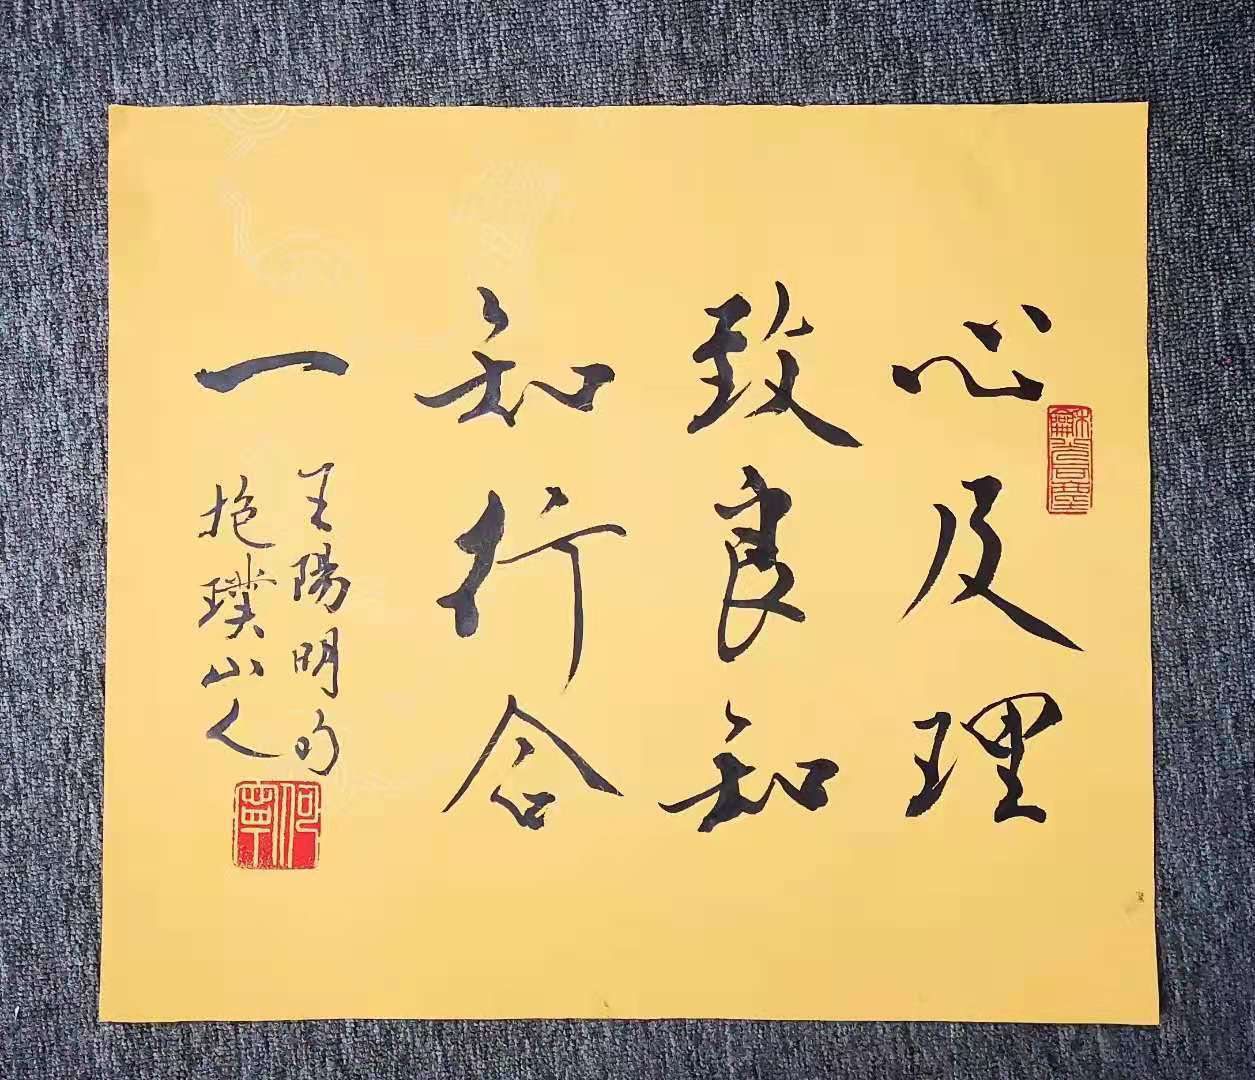 心及理
致良知
知行合
一
王陽明句
抱璞山人
何寧